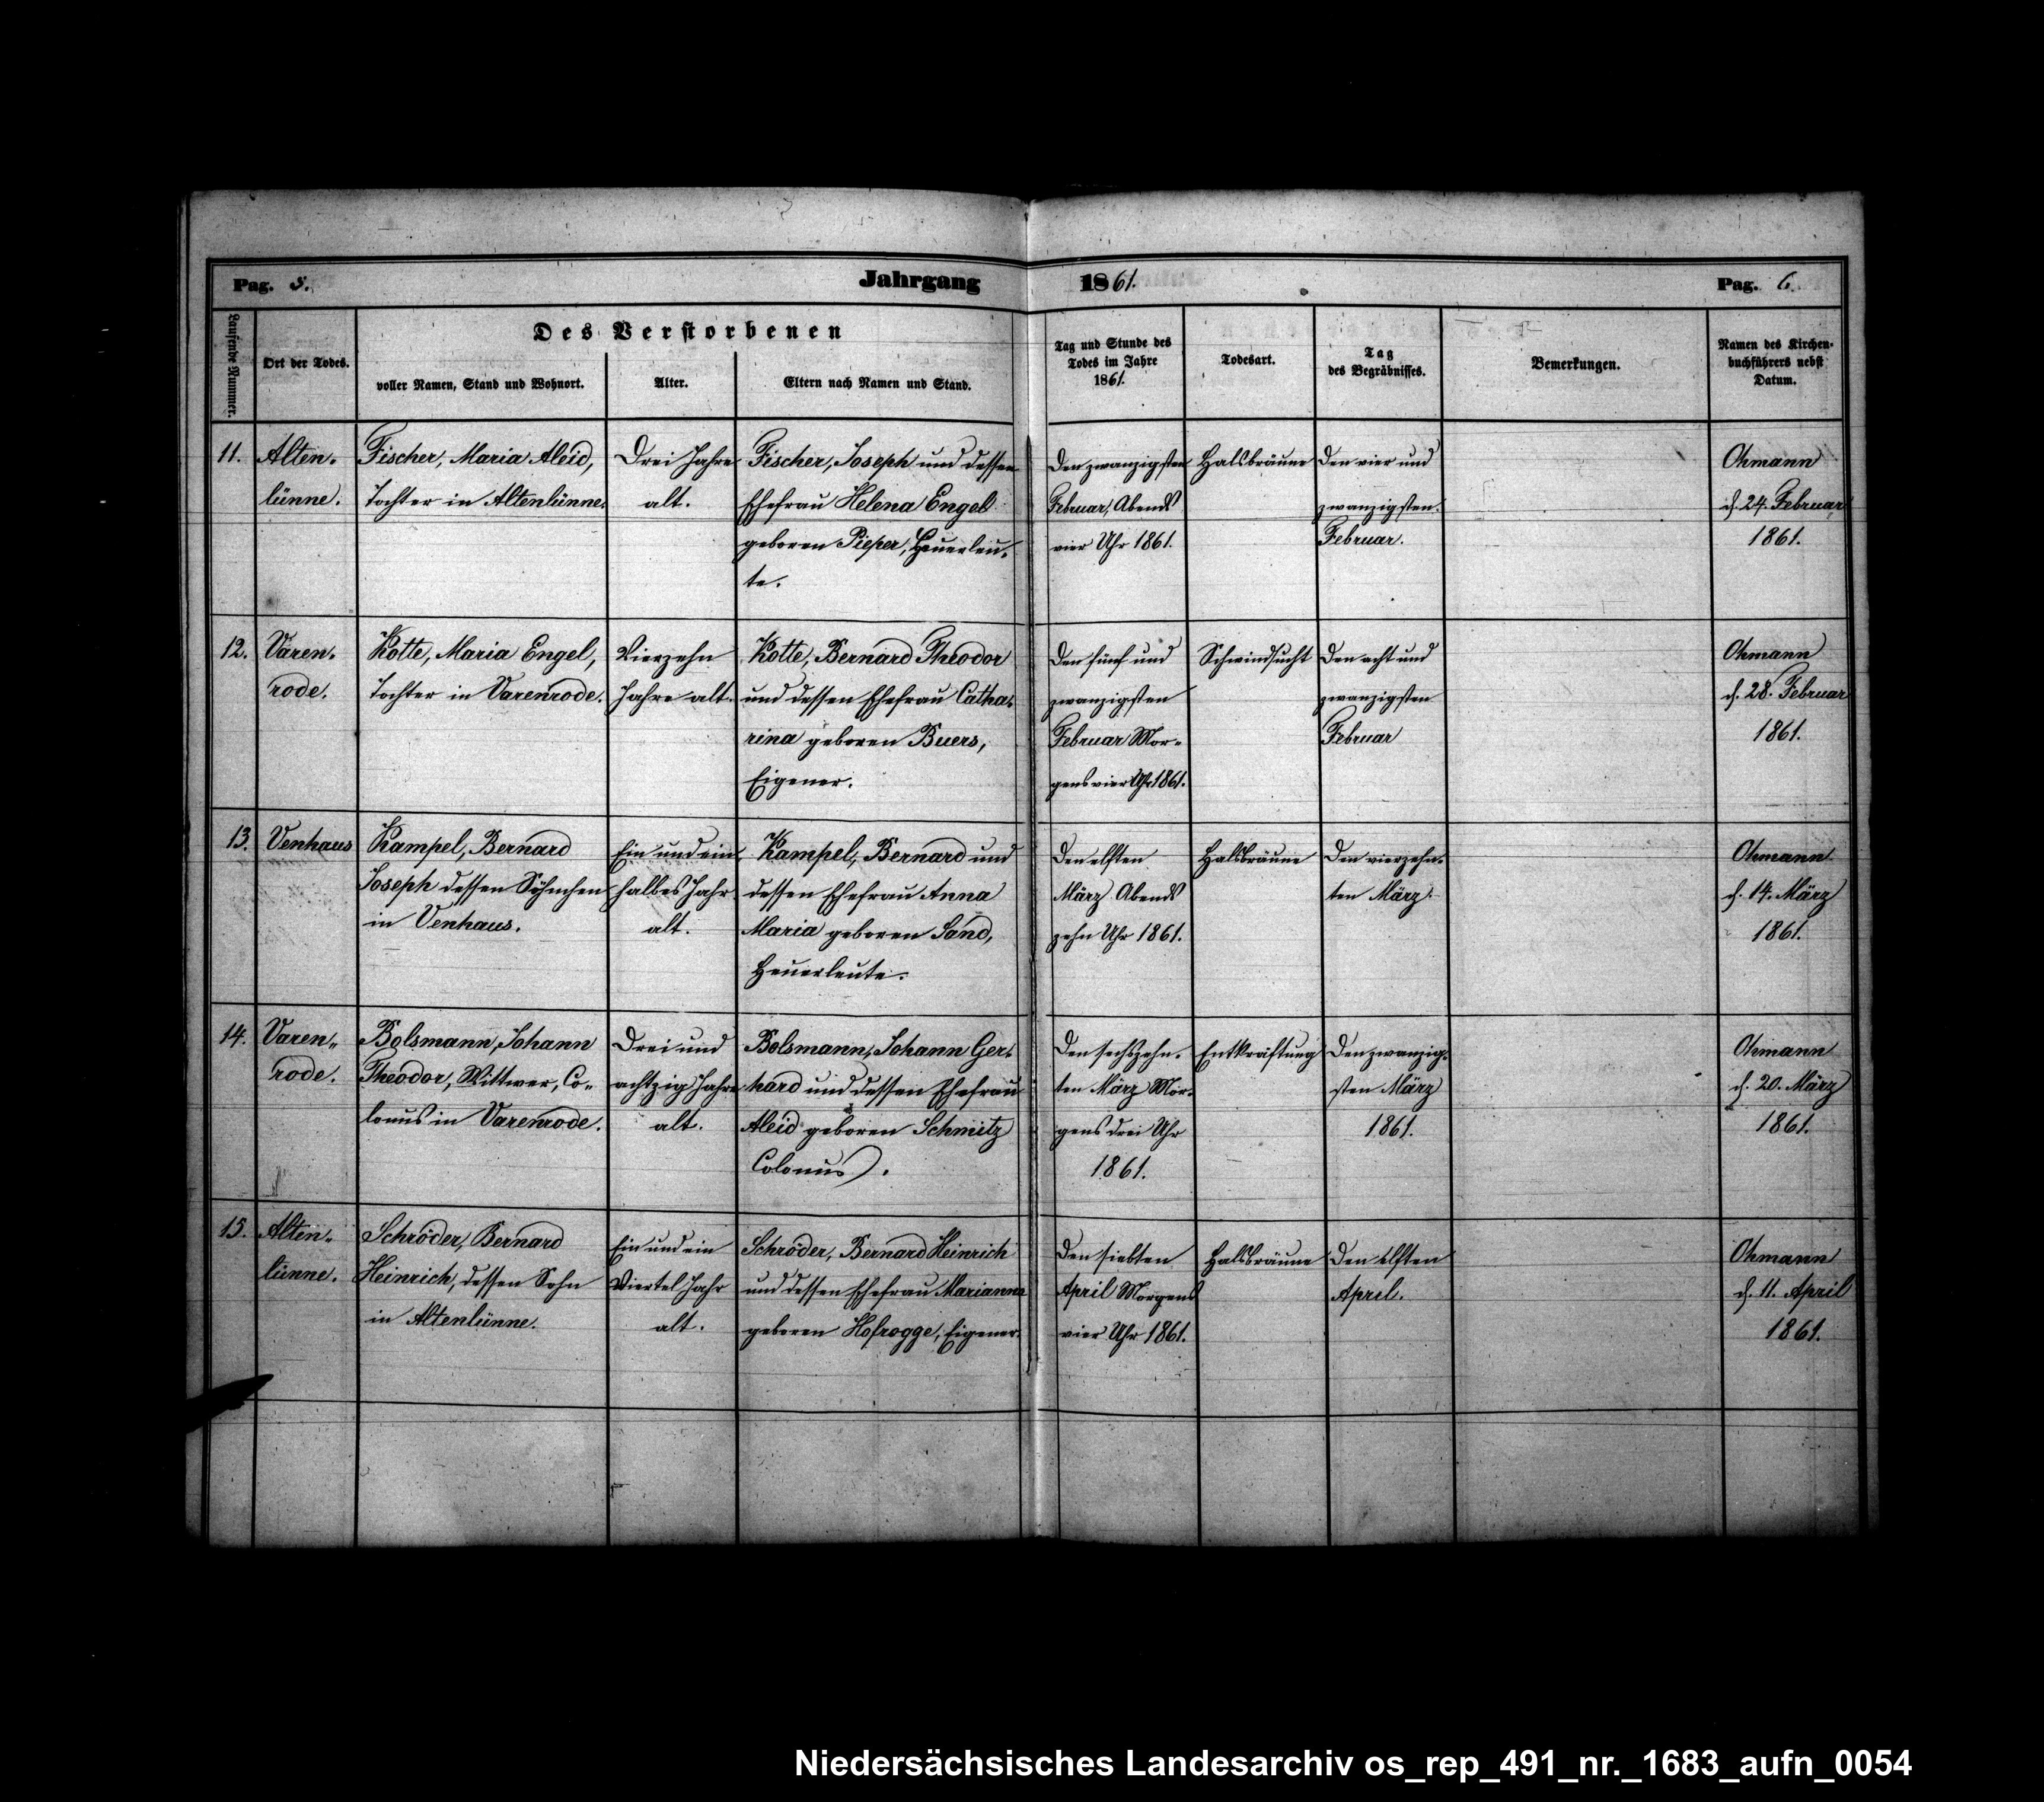 Pag. 5.
Jahrgang 1861.
Pag. 6.
Laufende Nummer.
Ort der Todes.
Des Verstorbenen
voller Namen, Stand und Wohnort.
Alter.
Eltern nach Namen und Stand.
Tag und Stunde des
Todes im Jahre
1861.
Todesart.
Tag
des Begräbnisses.
Bemerkungen.
Namen des Kirchen-
buchführers nebst
Datum.
11.
Alten-
lünne.
Fischer, Maria Aleid,
Tochter in Altenlünne.
Drei Jahre
alt.
Fischer, Joseph und dessen
Ehefrau Helena Engel
geboren Pieper, Heuerleu-
te.
Den zwanzigsten
Februar, Abends
vier Uhr 1861.
Halsbräune
Den vier und
zwanzigsten
Februar.
Ohmann
d. 24. Februar
1861.
12.
Varen-
rode.
Kotte, Maria Engel,
Tochter in Varenrode.
Vierzehn
Jahre alt.
Kotte, Bernard Theodor
und dessen Ehefrau Catha-
rina geboren Buers,
Eigener.
Den fünf und
zwanzigsten
Februar Mor-
gens vier Uhr 1861.
Schwindsucht
Den acht und
zwanzigsten
Februar
Ohmann
d. 28. Februar
1861.
13.
Venhaus
Kampel, Bernard
Joseph dessen Söhnchen
in Venhaus.
Ein und ein
halbes Jahr
alt.
Kampel, Bernard und
dessen Ehefrau Anna
Maria geboren Sand,
Heuerleute.
Den elften
März Abends
zehn Uhr 1861.
Halsbräune
Den vierzehn-
ten März.
Ohmann
d. 14. März
1861.
14.
Varen-
rode.
Bolsmann, Johann
Theodor, Wittwer, Co-
lonus in Varenrode.
Drei und
achtzig Jahre
alt.
Bolsmann, Johann Ger-
hard und dessen Ehefrau
Aleid geboren Schmitz
Colonus.
Den sechszehn-
ten März Mor-
gens drei Uhr
1861.
Entkräftung
Den zwanzig-
sten März
1861.
Ohmann
d. 20. März
1861.
15.
Alten-
lünne.
Schröder, Bernard
Heinrich, dessen Sohn
in Altenlünne.
Ein und ein
Viertel Jahr
alt.
Schröder, Bernard Heinrich
und dessen Ehefrau Marianna
geboren Hofrogge, Eigener.
Den siebten
April Morgens
vier Uhr 1861.
Halsbräune
Den elften
April.
Ohmann
d. 11. April
1861.
Niedersächsisches Landesarchiv os_rep_491_nr._1683_aufn_0054